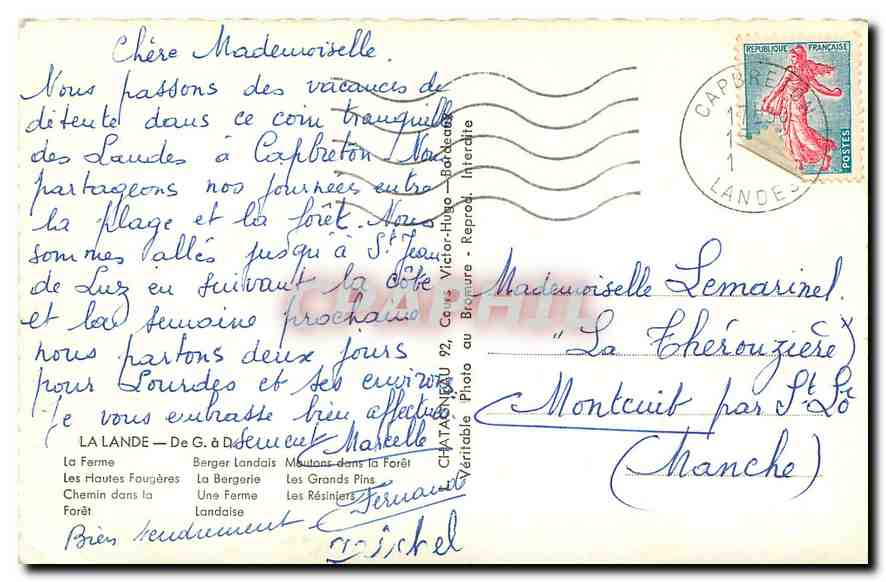 Chère Mademoiselle.
Nous passons des vacances de
détente dans ce coin tranquille
des Landes à Capbreton. Nous
partageons nos journées entre
la plage et la forêt. Nous
sommes allés jusqu'à St Jean
de Luz en suivant la côte
et la semaine prochaine
nous partons deux jours
pour Lourdes et ses environs
Je vous embrasse bien affectueu-
sement Marcelle
LA LANDE — De G. à D.
La Ferme Berger Landais Moutons dans la Forêt
Les Hautes Fougères La Bergerie Les Grands Pins
Chemin dans la Une Ferme Les Résiniers
Forêt Landaise
Fernand
Bien tendrement
Michel
CHATAGNEAU 92, Cours Victor-Hugo — Bordeaux
Véritable Photo au Bromure - Reprod. Interdite
REPUBLIQUE FRANÇAISE
POSTES
CAPBRETON
LANDES
Mademoiselle Lemarinel.
"La Thérouzière"
Montcuit par St Lô
(Manche)
CPAPHIL